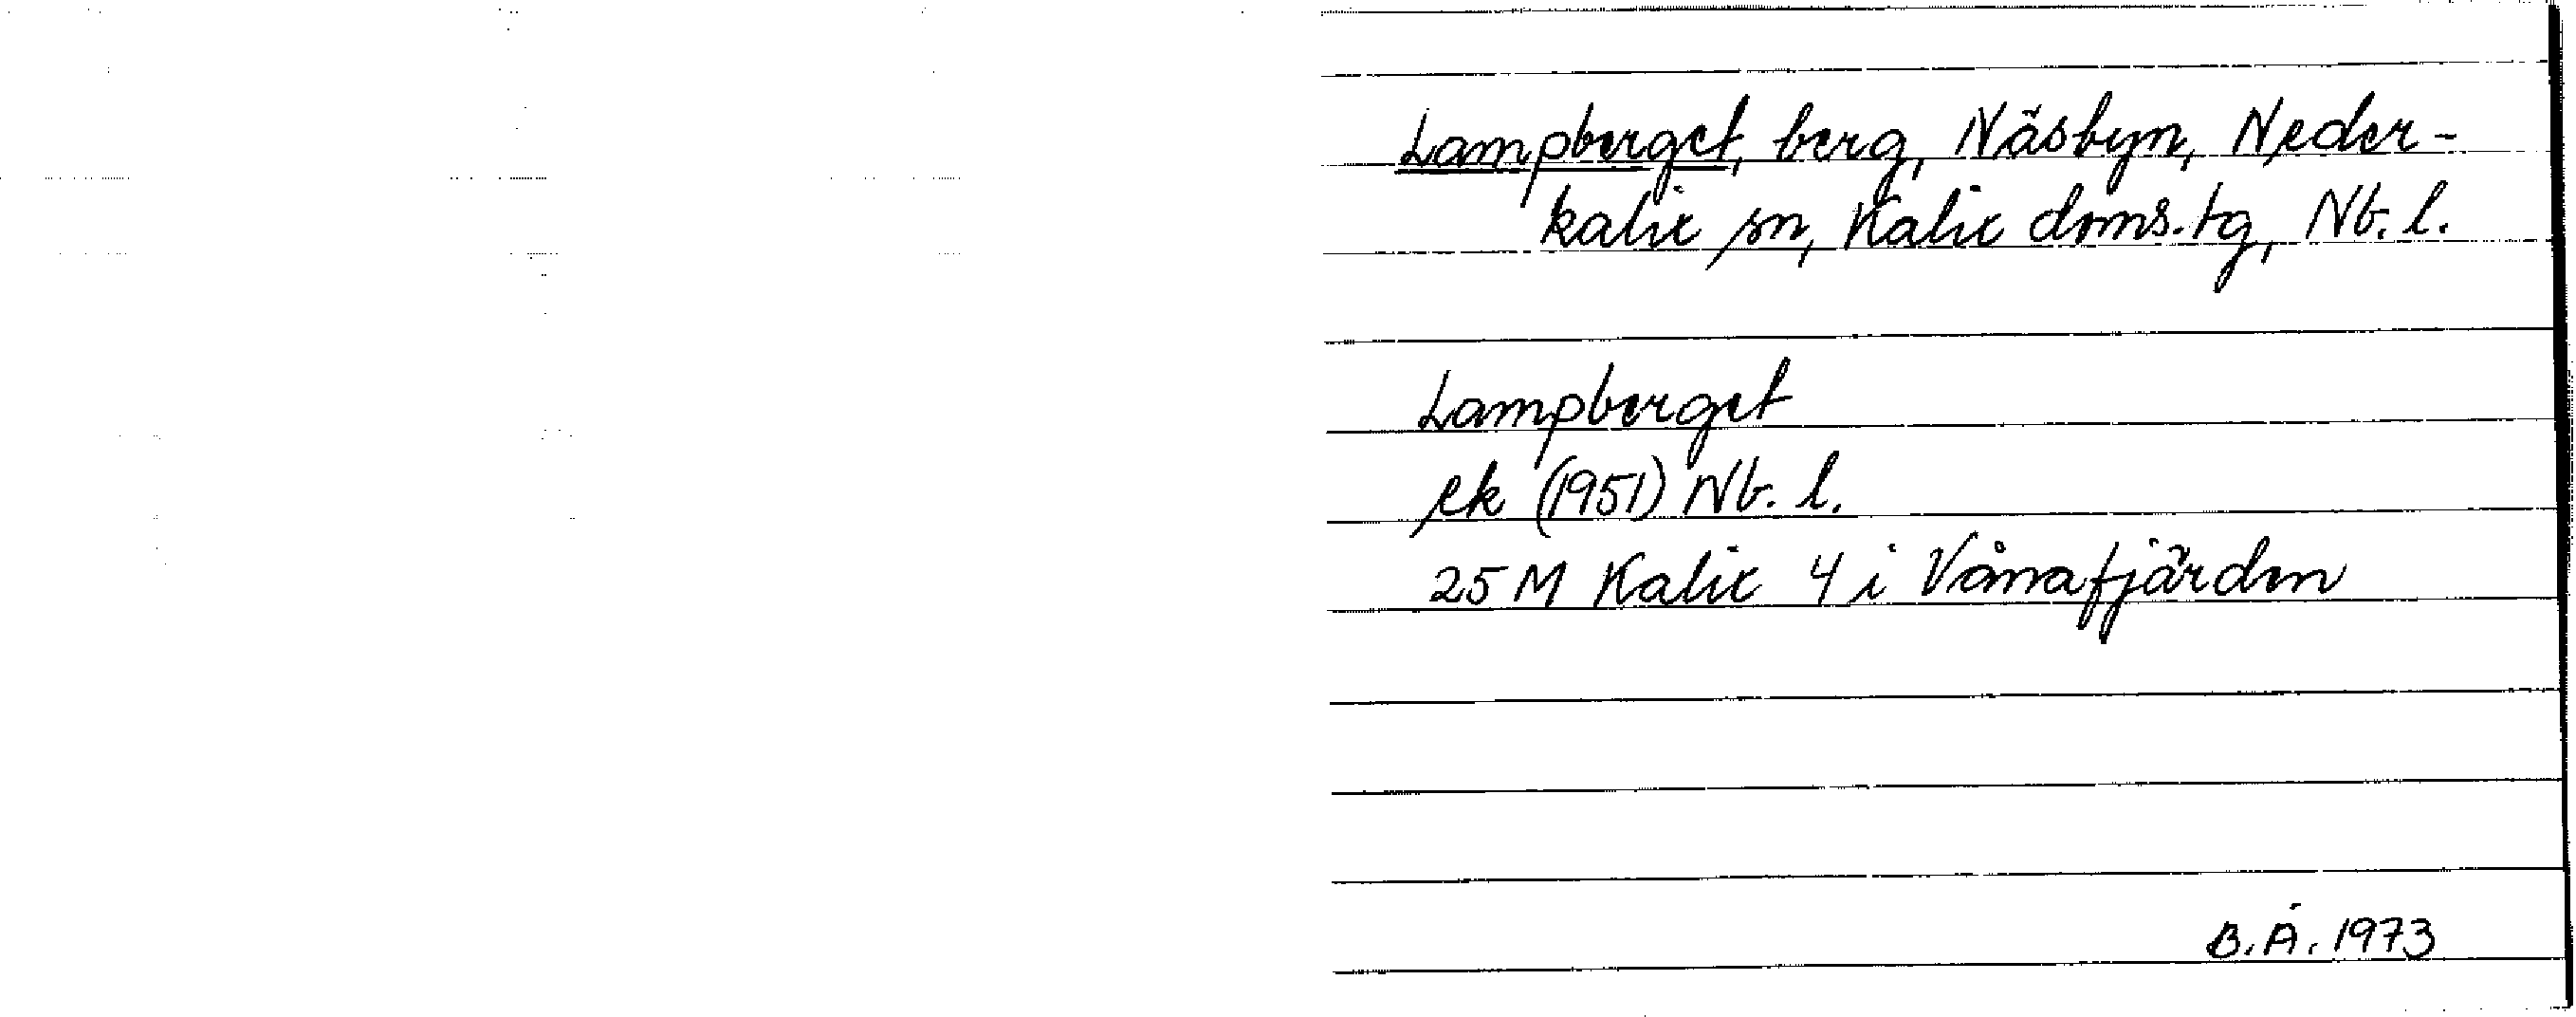 Lampberget, berg, Näsbyn, Neder-
kalix sn, Kalix doms.tg, Nb. l.
Lampberget
ek (1951) Nb. l.
25 M Kalix 4 i Vånafjärden
B.Å. 1973